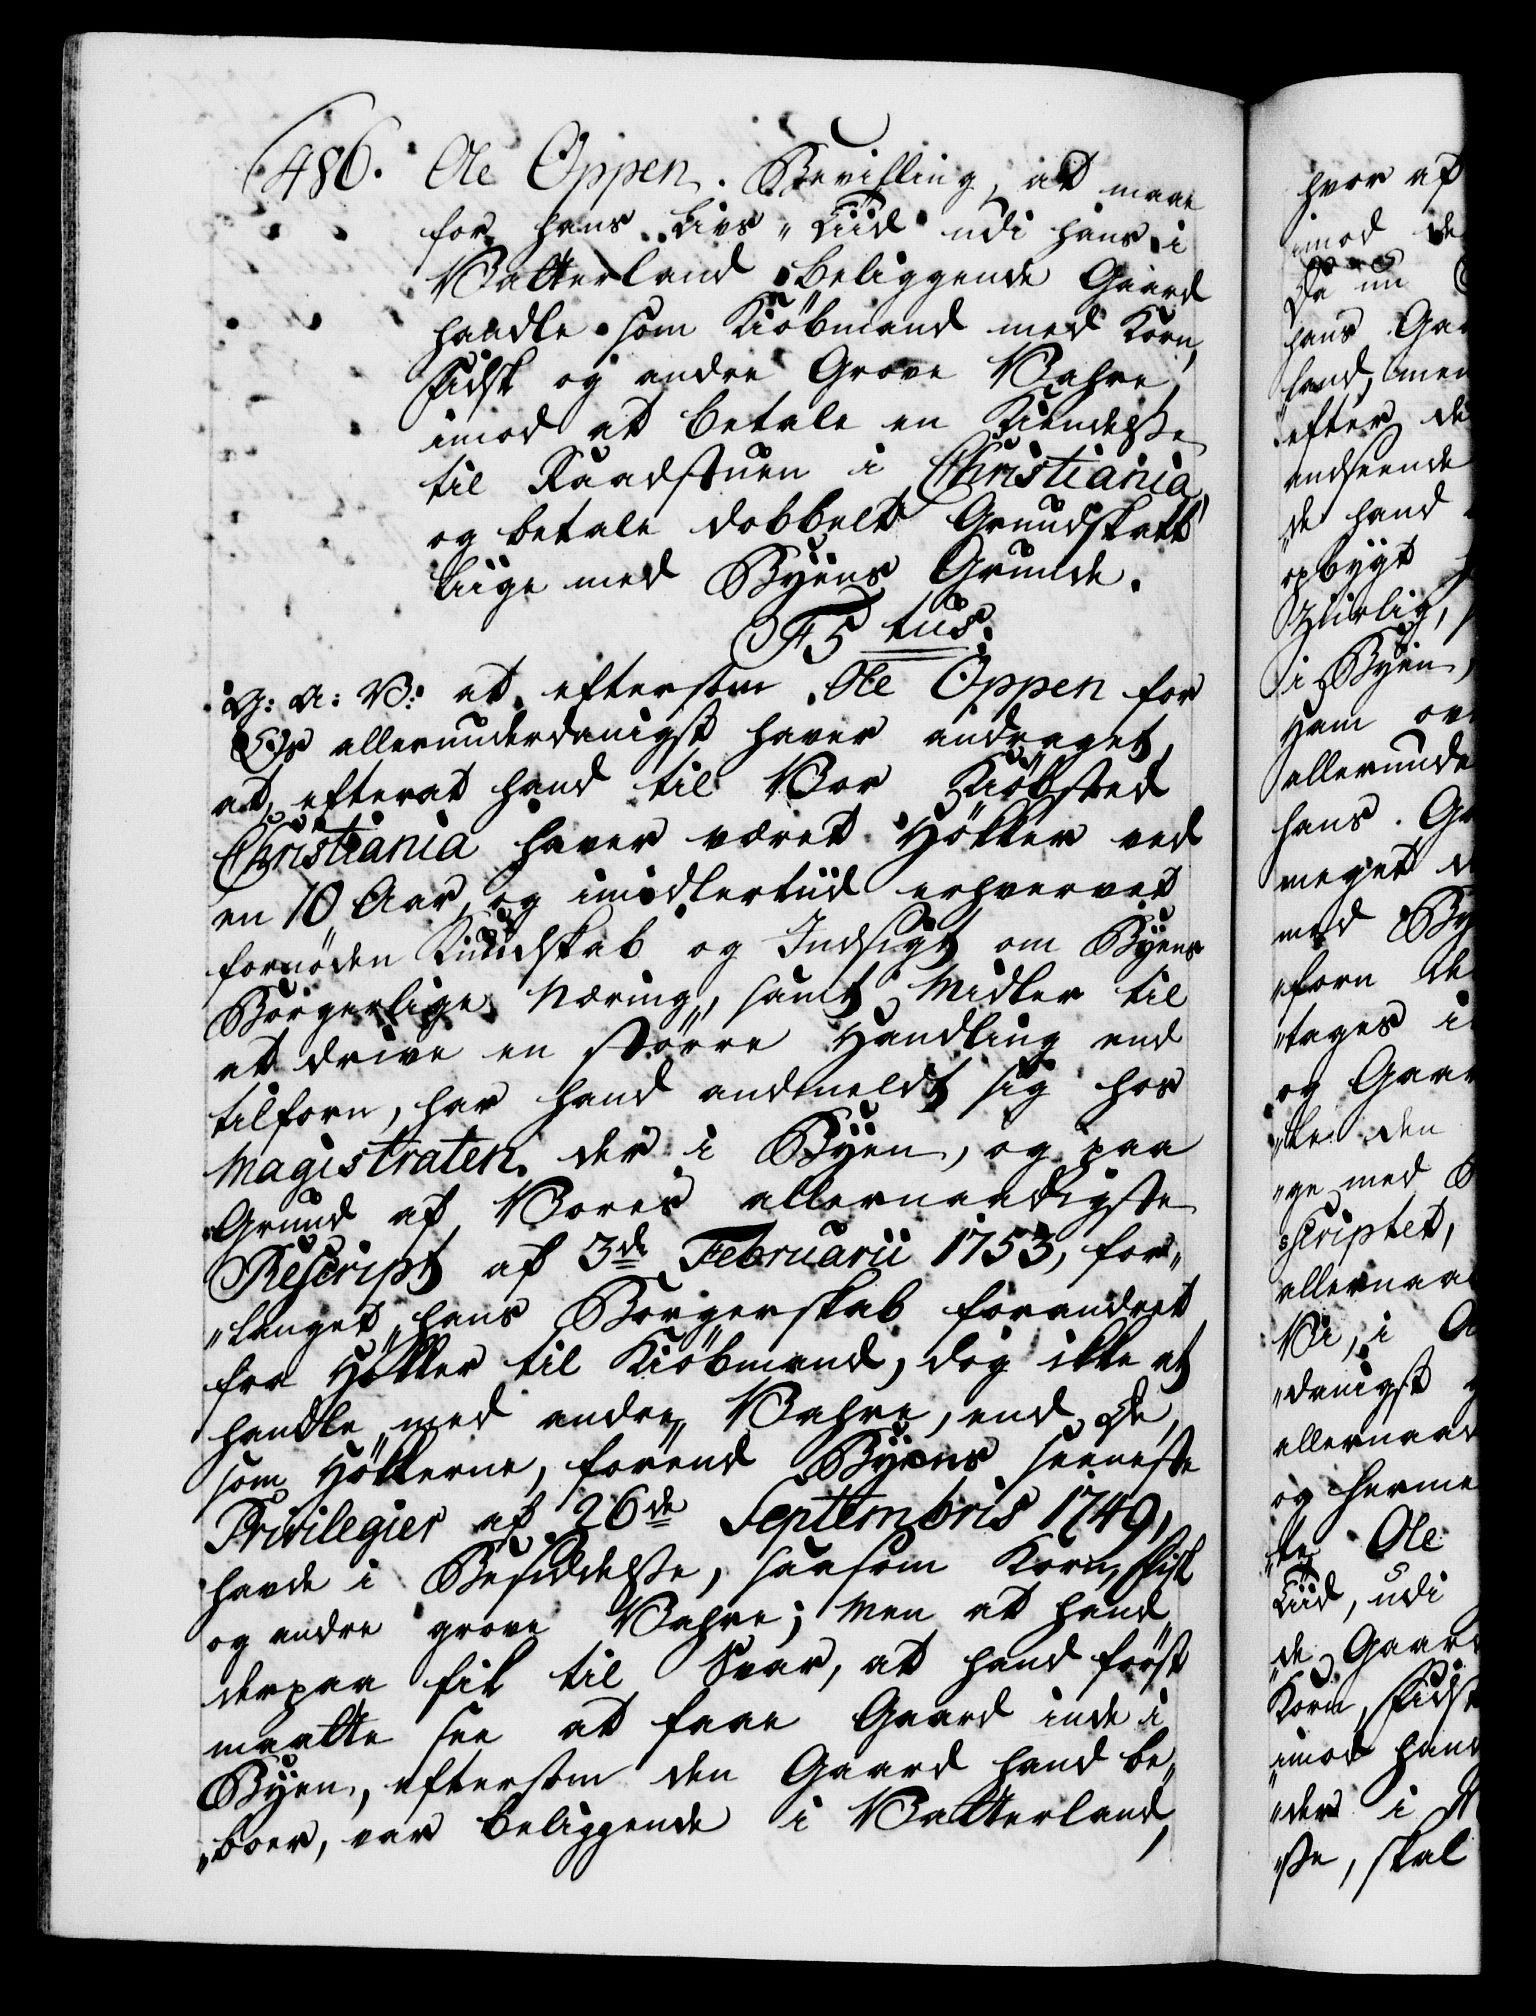 486. Ole Oppen. Bevilling, at maae
for hans Livs-Tiid udi hans i
Vatterland beliggende Gaard
handle som Kiöbmand med Korn,
Fidsk og andre Grove Vahre,
imod at betale en Kiendelße
til Raadstuen i Christiania,
og betale dobbelt Grundskatt
liige med Byens Grunde.
F5 tus.
G: A: V: at eftersom Ole Oppen for
Os allerunderdanigst haver andraget,
at, efterat hand til Vor Kiöbsted
Christiania haver været Hökker ved
en 10 Aar, og imidlertiid erhvervet
fornöden Kundskab og Indsigt om Byens
Borgerlige Næring, samt Midler til
at drive en större Handling end
tilforn, har hand andmeldt sig hos
Magistraten der i Byen, og paa
Grund af Vores allernaadigste
Rescript af 3de Februarii 1753, for„
„langet hans Borgerskab forandret
fra Hökker til Kiöbmand, dog ikke at
handle med andre Vahre, end de,
som Hökkerne, förend Byens seeneste
Privilegier af 26de Septembris 1749,
havde i Besiddelße, saasom Korn, Fisk
og andre grove Vahre; Men at hand
derpaa fik til Svar, at hand först
maatte see at faae Gaard inde i
Byen, eftersom den Gaard hand be„
„boer, var beliggende i Vatterland,
hvor af
imod de
Da nu
hans Gaa
hand, men
efter de
andseende
de hand
opbygt
Ziirlig,
i Byen,
ham ov
allerunde
hans Ga
meget
med By
„forn de
„tages i
og Gaar
„le den
„ge med
scriptet,
allernaa
Vi, i
„danigst
allernaad
og herme
„te Ole
Tiid, udi
de Gaard
Korn, Fidsk
imod hand
„der i M
„ße, skal